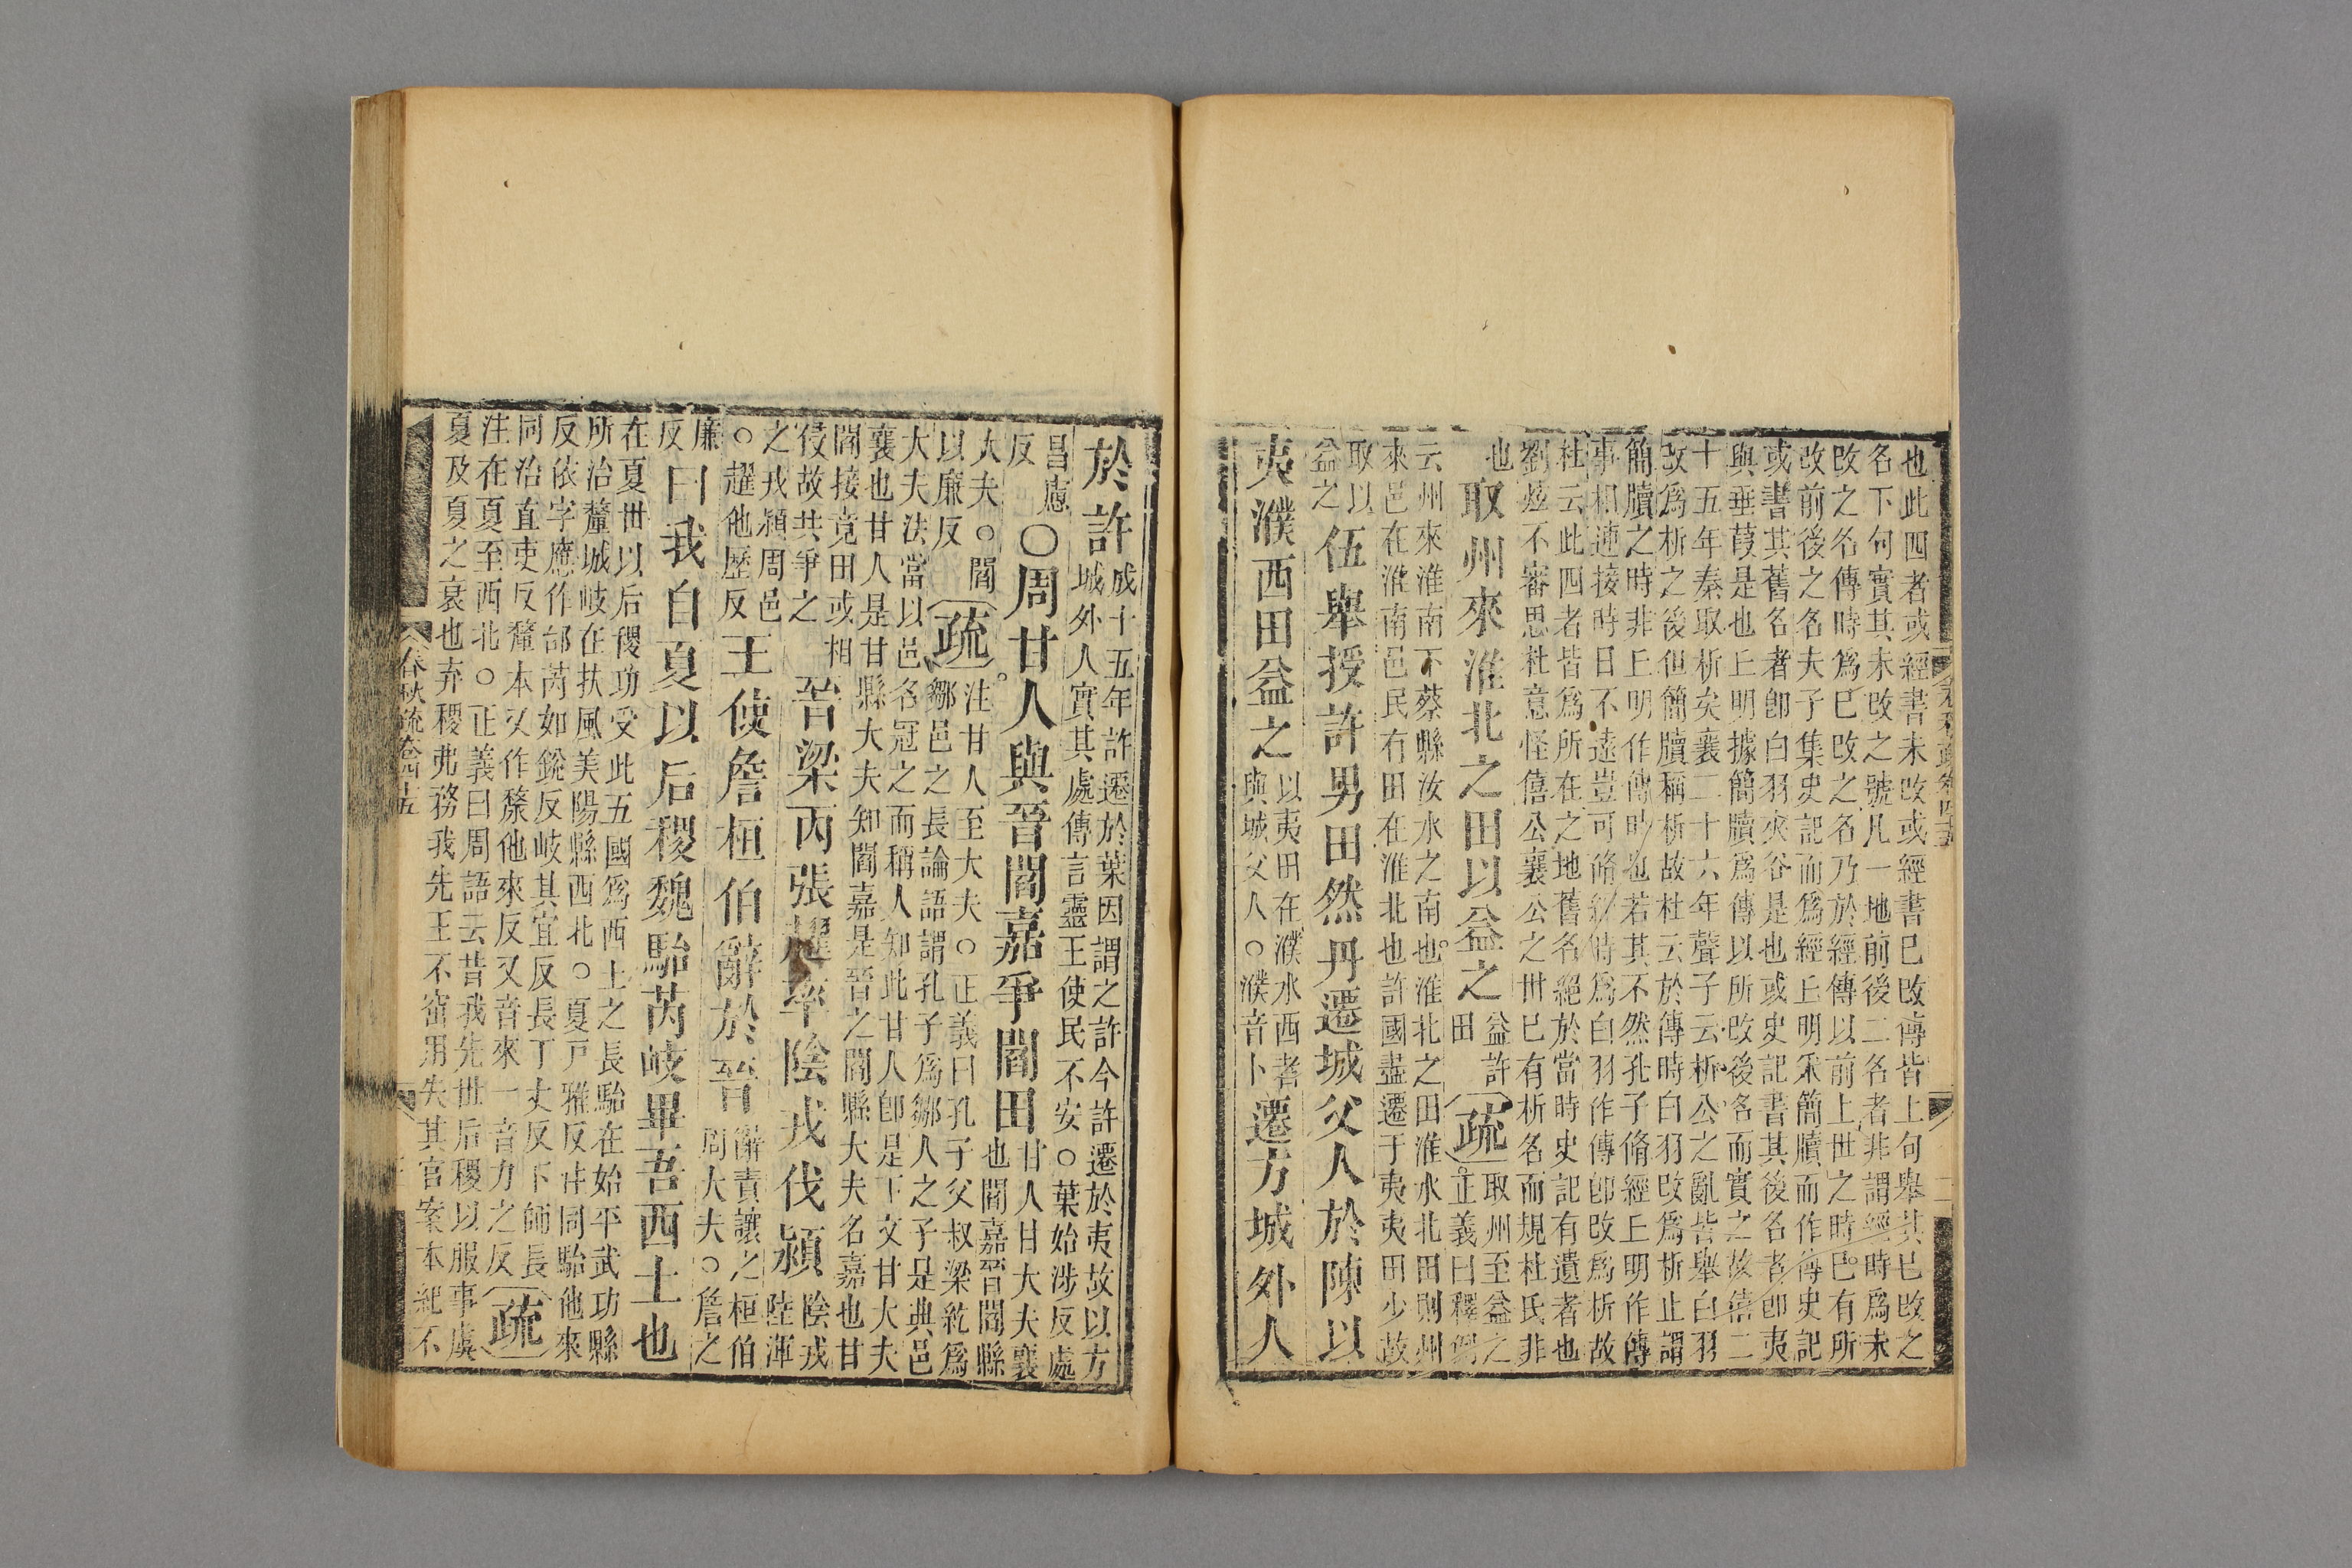 也此四者或經書未改或經書巳改傳皆上句舉其巳改之
名下句實其未改之號凡一地前後二名者非謂經時爲未
改之名傳時爲巳改之名乃於經傳以前上世之時巳有所
改前後之名夫子集史記而爲經丘明采簡牘而作傳史記
或書其舊名者卽白羽夾谷是也或史記書其後名者卽夷
與垂葭是也丘明據簡牘爲傳以所改後名而實之故僖二
十五年秦取析矣襄二十六年聲子云析公之亂皆舉白羽
改爲析之後但簡牘稱析故杜云於傳時白羽改爲析止謂
簡牘之時非丘明作傳時也若其不然孔子脩經丘明作傳
事相連接時日不遠豈可脩經時爲白羽作傳卽改爲析故
杜云此四者皆爲所在之地舊名絕於當時史記有遺者也
劉炫不審思杜意怪僖公襄公之世巳有析名而規杜氏非
也
取州來淮北之田以益之
益許
田
疏
取州至益之
正義曰釋例
云州來淮南下蔡縣汝水之南也淮北之田淮水北田則州
來邑在淮南邑民有田在淮北也許國盡遷于夷夷田少故
取以
益之
伍舉授許男田然丹遷城父人於陳以
夷濮西田益之
以夷田在濮水西者
與城父人○濮音卜
遷方城外人
於許
成十五年許遷於葉因謂之許今許遷於夷故以方
城外人實其處傳言靈王使民不安○葉始涉反處
昌慮
反
○周甘人與晉閻嘉爭閻田
甘人甘大夫襄
也閻嘉晉閻縣
大夫○閻
以廉反
疏
注甘人至大夫○正義曰孔子父叔梁紇爲
鄹邑之長論語謂孔子爲鄹人之子是典邑
大夫法當以邑名冠之而稱人知此甘人卽是下文甘大夫
襄也甘人是甘縣大夫知閻嘉是晉之閻縣大夫名嘉也甘
閻接竟田或相
侵故共爭之
晉梁丙張趯率陰戎伐潁
陰戎
陸渾
之戎潁周邑
○趯他歷反
王使詹桓伯辭於晉
辭責讓之桓伯
周大夫○詹之
廉
反
曰我自夏以后稷魏駘芮岐畢吾西土也
在夏世以后稷功受此五國爲西土之長駘在始平武功縣
所治釐城岐在扶風美陽縣西北○夏戸雅反注同駘他來
反依字應作邰芮如銳反岐其宜反長丁丈反下師長
同治直吏反釐本又作斄他來反又音來一音力之反
疏
注在夏至西北○正義曰周語云昔我先世后稷以服事虞
夏及夏之衰也弃稷弗務我先王不窋用失其官案本紀不
春秋疏卷四十五